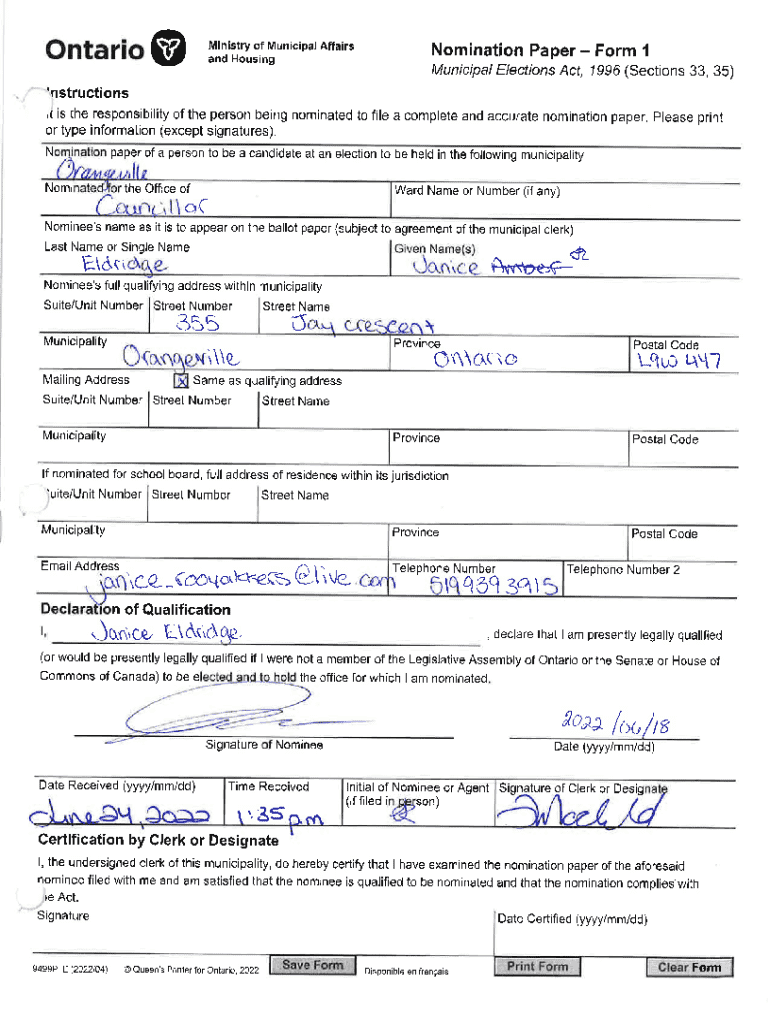 Ontario
Ministry of Municipal Affairs
and Housing
Nomination Paper – Form 1
Municipal Elections Act, 1996 (Sections 33, 35)
Instructions
It is the responsibility of the person being nominated to file a complete and accurate nomination paper. Please print
or type information (except signatures).
Nomination paper of a person to be a candidate at an election to be held in the following municipality
Orangeville
Nominated for the Office of
Ward Name or Number (if any)
Councillor
Nominee's name as it is to appear on the ballot paper (subject to agreement of the municipal clerk)
Last Name or Single Name
Given Name(s)
Eldridge
Janice
Nominee's full qualifying address within municipality
Suite/Unit Number Street Number Street Name
355 Jay crescent
Municipality Province Postal Code
Orangeville Ontario L9W 4Y7
Mailing Address
Same as qualifying address
Suite/Unit Number Street Number Street Name
Municipality Province Postal Code
If nominated for school board, full address of residence within its jurisdiction
Suite/Unit Number Street Number Street Name
Municipality Province Postal Code
Email Address Telephone Number Telephone Number 2
janice_rooyakkers@live.com 5199393915
Declaration of Qualification
I, Janice Eldridge , declare that I am presently legally qualified
(or would be presently legally qualified if I were not a member of the Legislative Assembly of Ontario or the Senate or House of
Commons of Canada) to be elected and to hold the office for which I am nominated.
2022/06/18
Signature of Nominee Date (yyyy/mm/dd)
Date Received (yyyy/mm/dd) Time Received Initial of Nominee or Agent Signature of Clerk or Designate
(if filed in person)
June 24, 2022 1:35 pm
Certification by Clerk or Designate
I, the undersigned clerk of this municipality, do hereby certify that I have examined the nomination paper of the aforesaid
nominee filed with me and am satisfied that the nominee is qualified to be nominated and that the nomination complies with
the Act.
Signature Date Certified (yyyy/mm/dd)
9499P E (2022/04) © Queen's Printer for Ontario, 2022 Save Form Disponible en français Print Form Clear Form